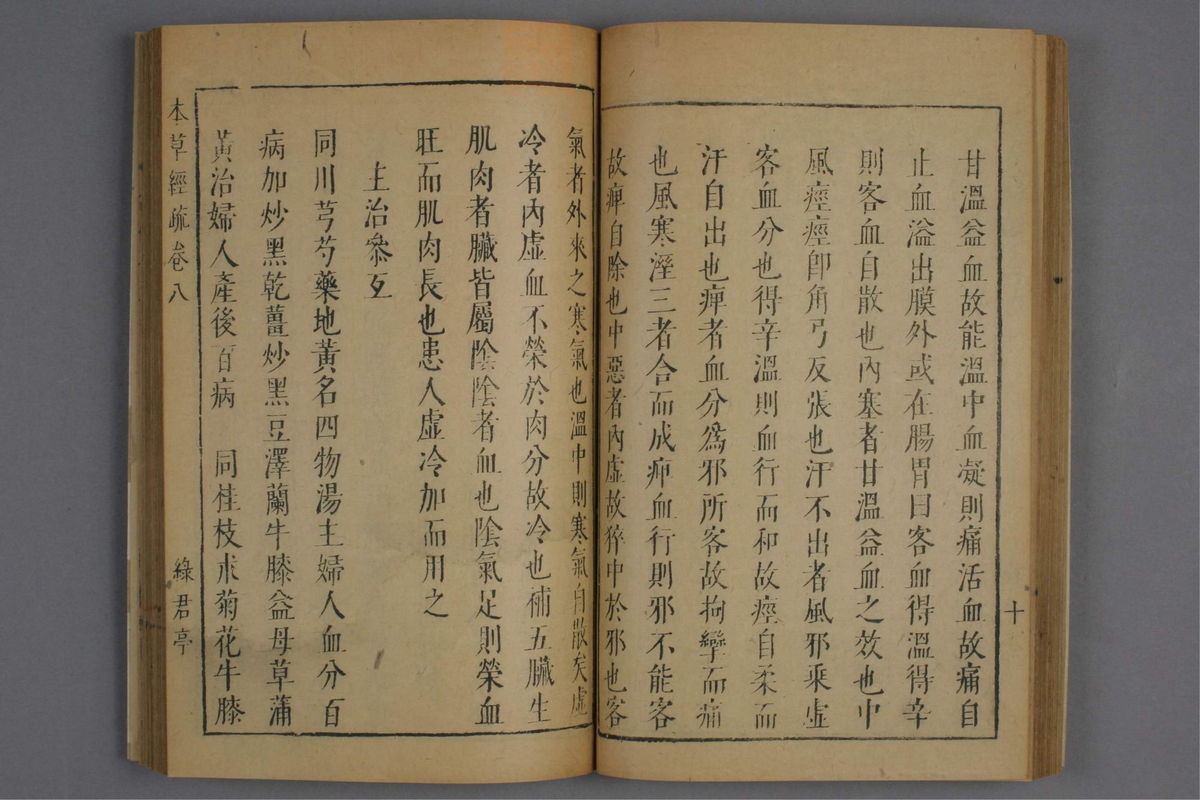 甘溫益血故能溫中血凝則痛活血故痛自
止血溢出膜外或在腸胃曰客血得溫得辛
則客血自散也內塞者甘溫益血之效也中
風痙痙卽角弓反張也汗不出者風邪乘虛
客血分也得辛溫則血行而和故痙自柔而
汗自出也痺者血分爲邪所客故拘攣而痛
也風寒溼三者合而成痺血行則邪不能客
故痺自除也中惡者內虛故猝中於邪也客
十
氣者外來之寒氣也溫中則寒氣自散矣虛
冷者內虛血不榮於肉分故冷也補五臟生
肌肉者臟皆屬陰陰者血也陰氣足則榮血
旺而肌肉長也患人虛冷加而用之
主治參互
同川芎芍藥地黃名四物湯主婦人血分百
病加炒黑乾薑炒黑豆澤蘭牛膝益母草蒲
黃治婦人產後百病 同桂枝朮菊花牛膝
本草經疏卷八
綠君亭